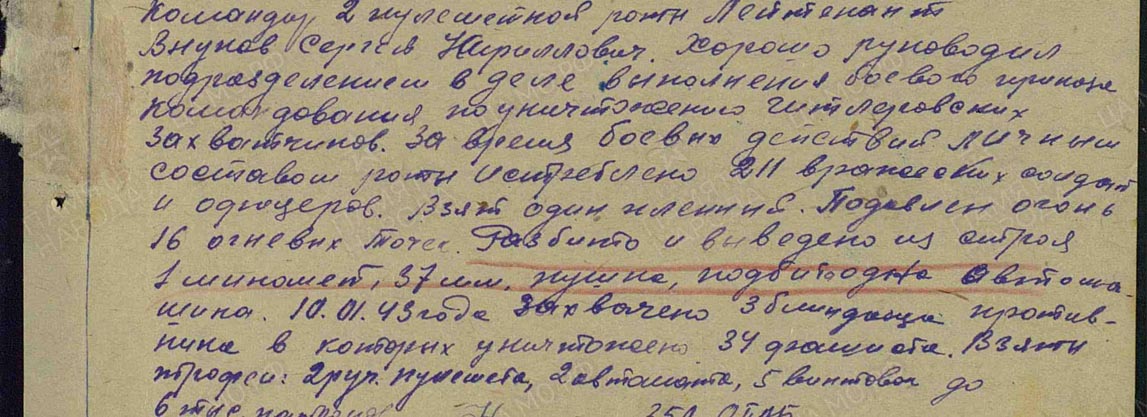 Командир 2 пулеметной роты Лейтенант
Внуков Сергей Кириллович. Хорошо руководил
подразделением в деле выполнения боевого приказа
командования по уничтожению гитлеровских
захватчиков. За время боевых действий личным
составом роты истреблено 211 вражеских солдат
и офицеров. Взят один пленный. Подавлен огонь
16 огневых точек. Разбито и выведено из строя
1 миномет, 37 мм. пушка, подбита одна автома
шина. 10.01.43 года захвачено 3 блиндажа против-
ника в которых уничтожено 34 фашиста. Взяты
трофеи: 2 руч. пулемета, 2 автомата, 5 винтовок до
6 тыс. патронов